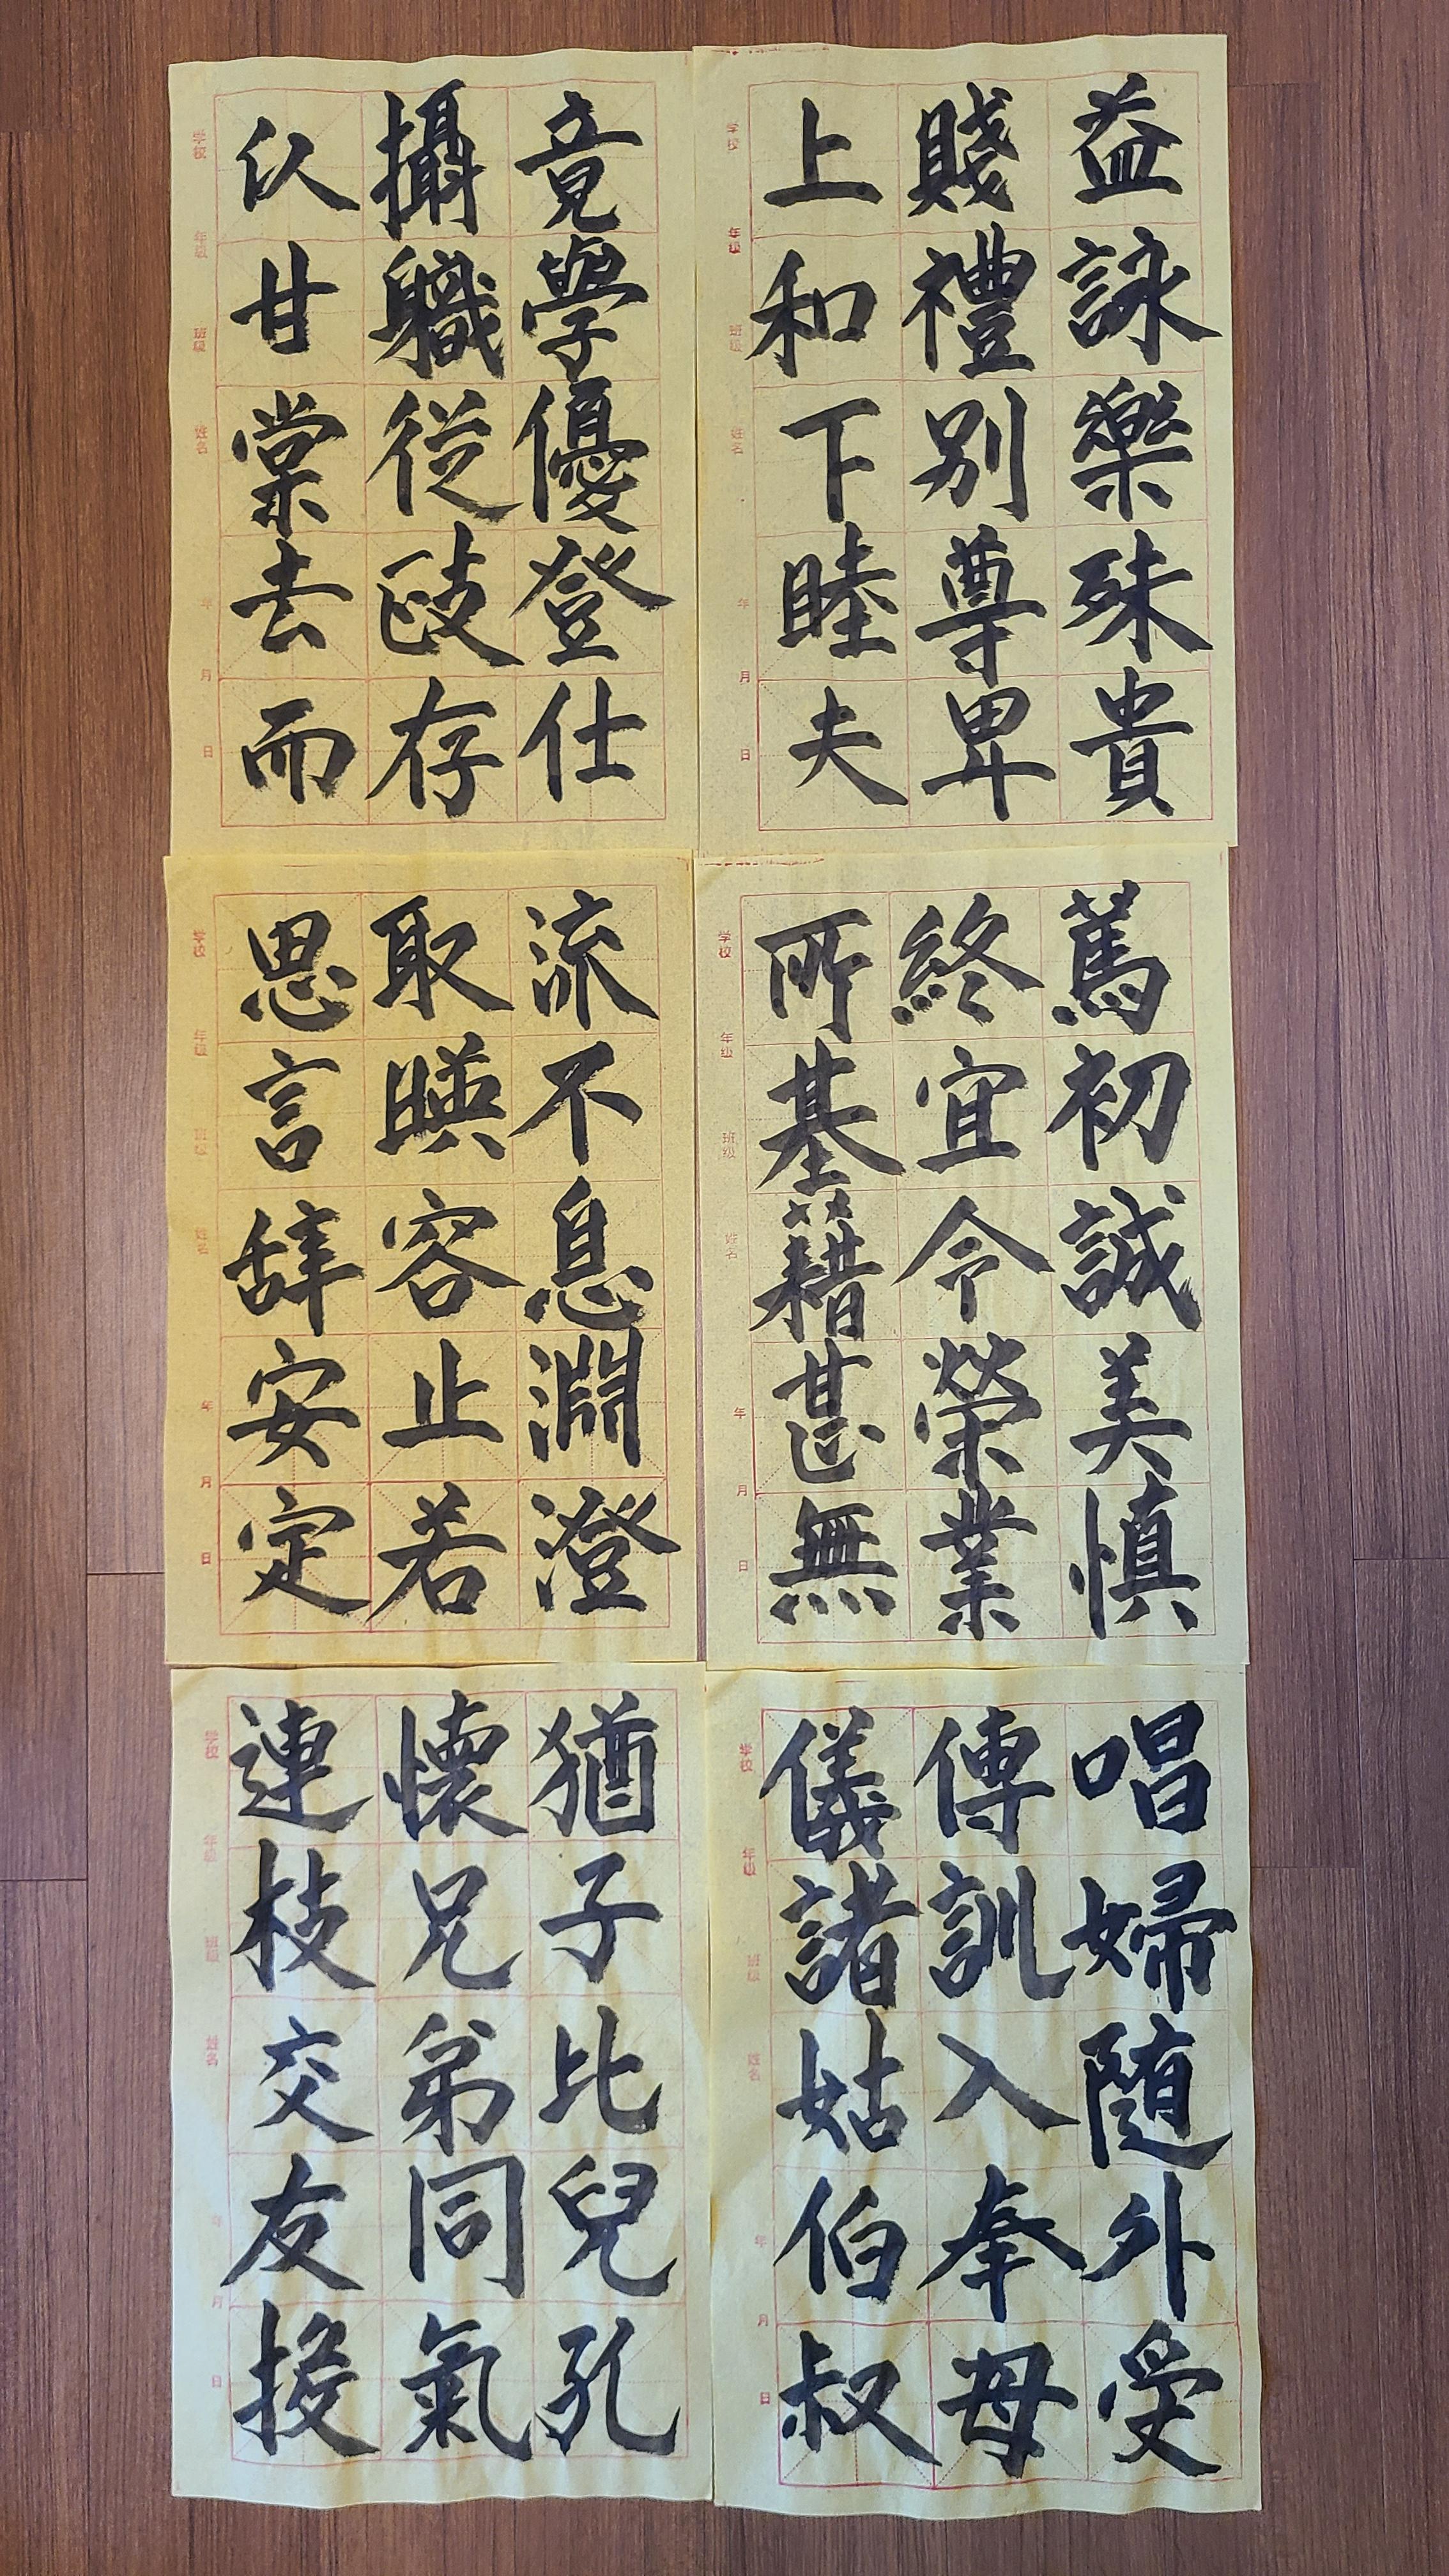 益詠樂殊貴
賤禮別尊卑
上和下睦夫
学校 年级 班级 姓名 年 月 日
竟學優登仕
攝職從政存
以甘棠去而
学校 年级 班级 姓名 年 月 日
篤初誠美慎
終宜令榮業
所基藉甚無
学校 年级 班级 姓名 年 月 日
流不息淵澄
取暎容止若
思言辞安定
学校 年级 班级 姓名 年 月 日
唱婦随外受
傳訓入奉母
儀諸姑伯叔
学校 年级 班级 姓名 年 月 日
猶子比兒孔
懐兄弟同氣
連枝交友投
学校 年级 班级 姓名 年 月 日